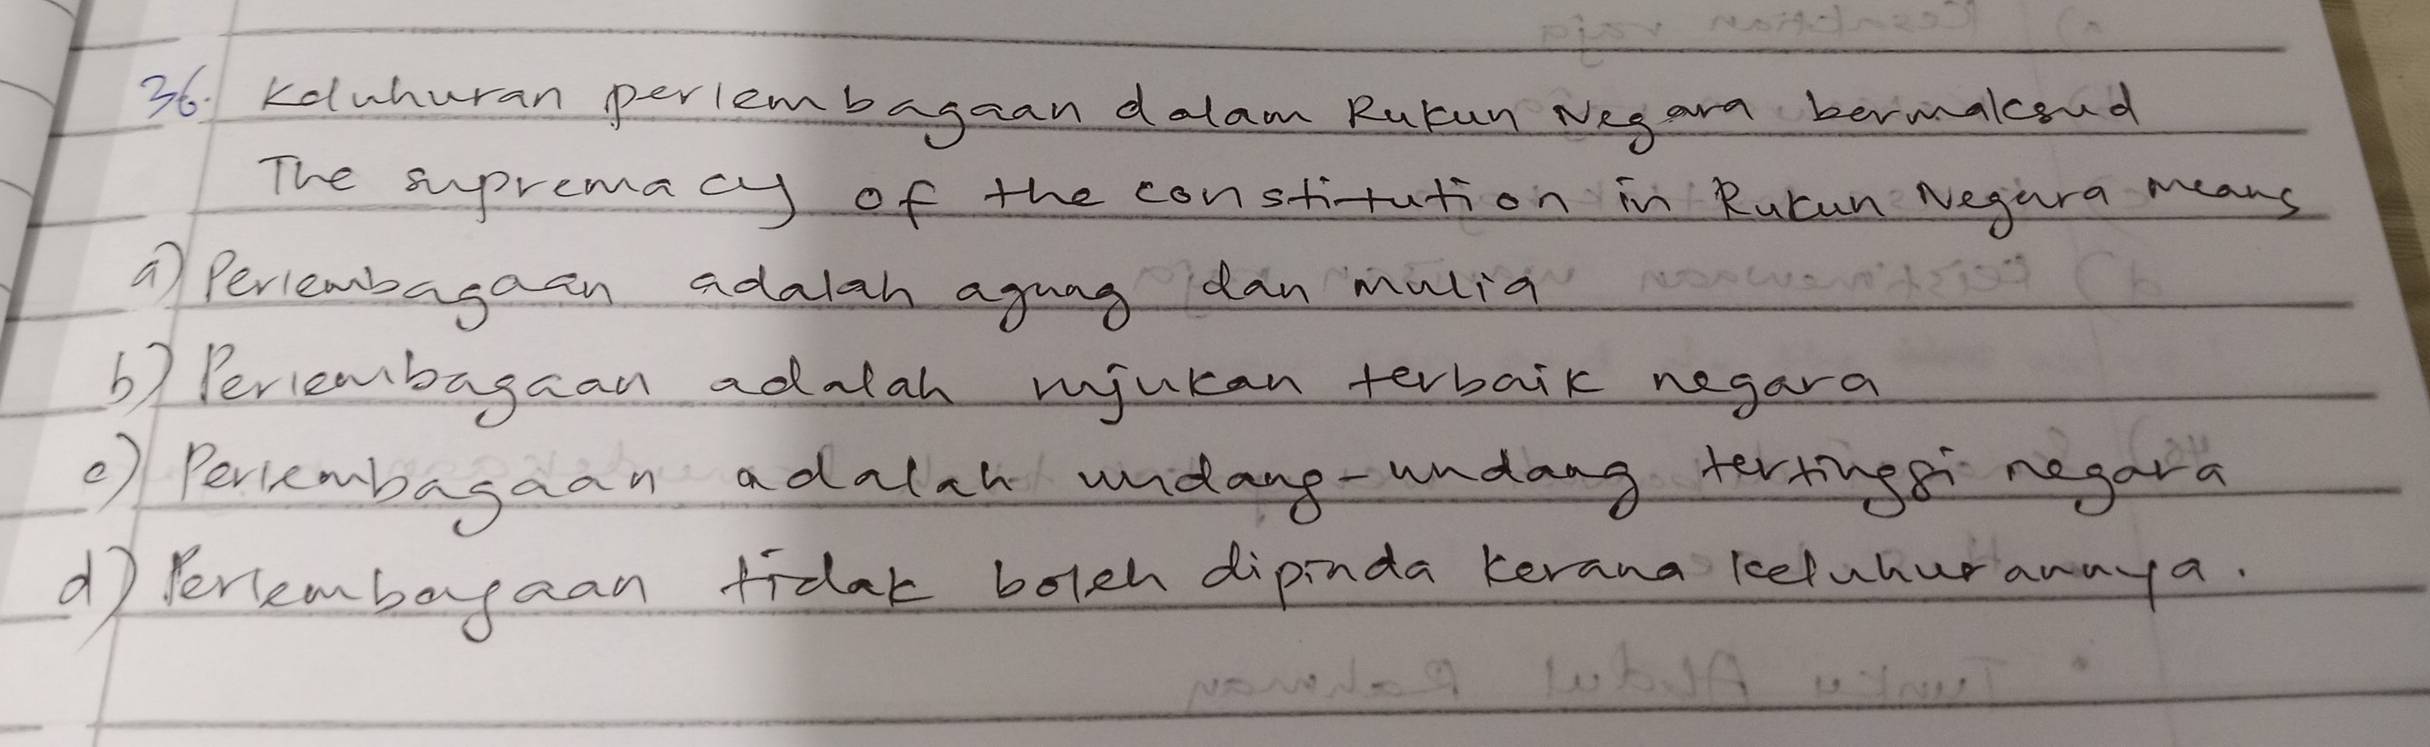 36. Keluhuran perlembagaan dalam Rukun Negara bermaksud
The supremacy of the constitution in Rukun Negara means
a) Perlembagaan adalah agung dan mulia
b) Perlembagaan adalah rujukan terbaik negara
c) Perlembagaan adalah undang-undang tertinggi negara
d) Perlembagaan tidak boleh dipinda kerana keluhurannya.